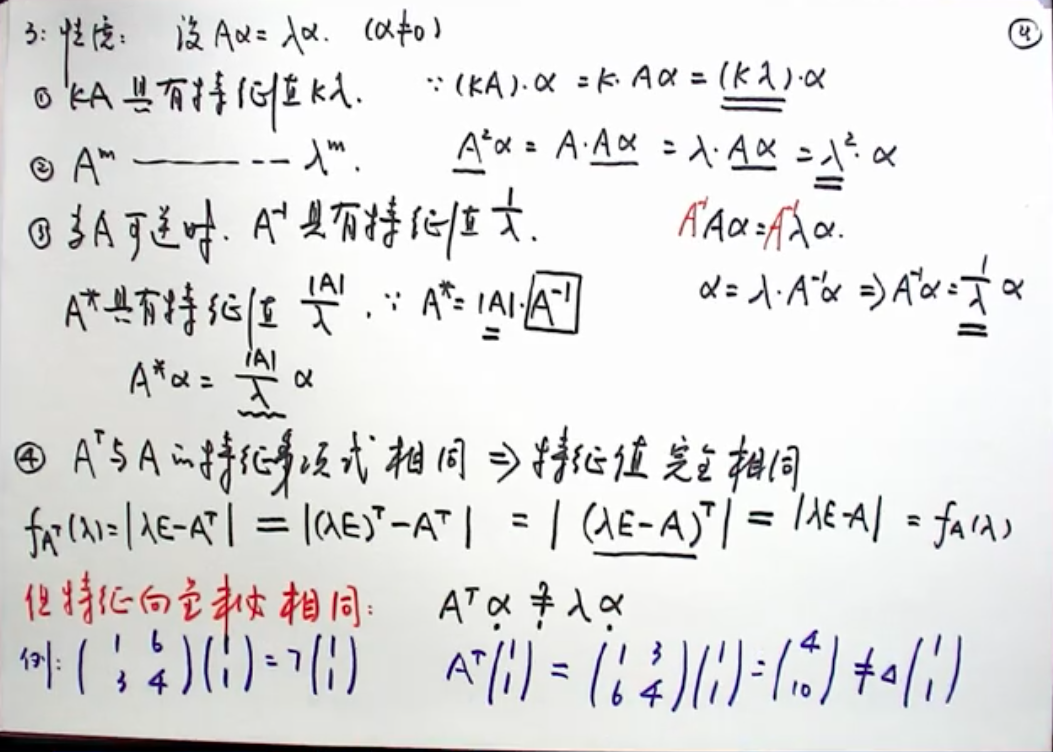 3: 性质: 设 Aα = λα. (α≠0) ④
① kA 具有特征值 kλ. ∵ (kA)·α = k·Aα = (kλ)·α
② Aᵐ ——— -- λᵐ. A²α = A·Aα = λ·Aα = λ²·α
③ 当A可逆时. A⁻¹ 具有特征值 1/λ. A⁻¹Aα = A⁻¹λα.
A* 具有特征值 |A|/λ. ∵ A* = |A|·A⁻¹ α = λ·A⁻¹α ⇒ A⁻¹α = 1/λ α
A*α = |A|/λ α
④ Aᵀ与A的特征多项式相同 ⇒ 特征值完全相同
f_Aᵀ(λ) = |λE-Aᵀ| = |(λE)ᵀ-Aᵀ| = |(λE-A)ᵀ| = |λE-A| = f_A(λ)
但特征向量未必相同: Aᵀα ≠? λα
例: (1 6; 3 4)(1; 1) = 7(1; 1) Aᵀ(1; 1) = (1 3; 6 4)(1; 1) = (4; 10) ≠ △(1; 1)